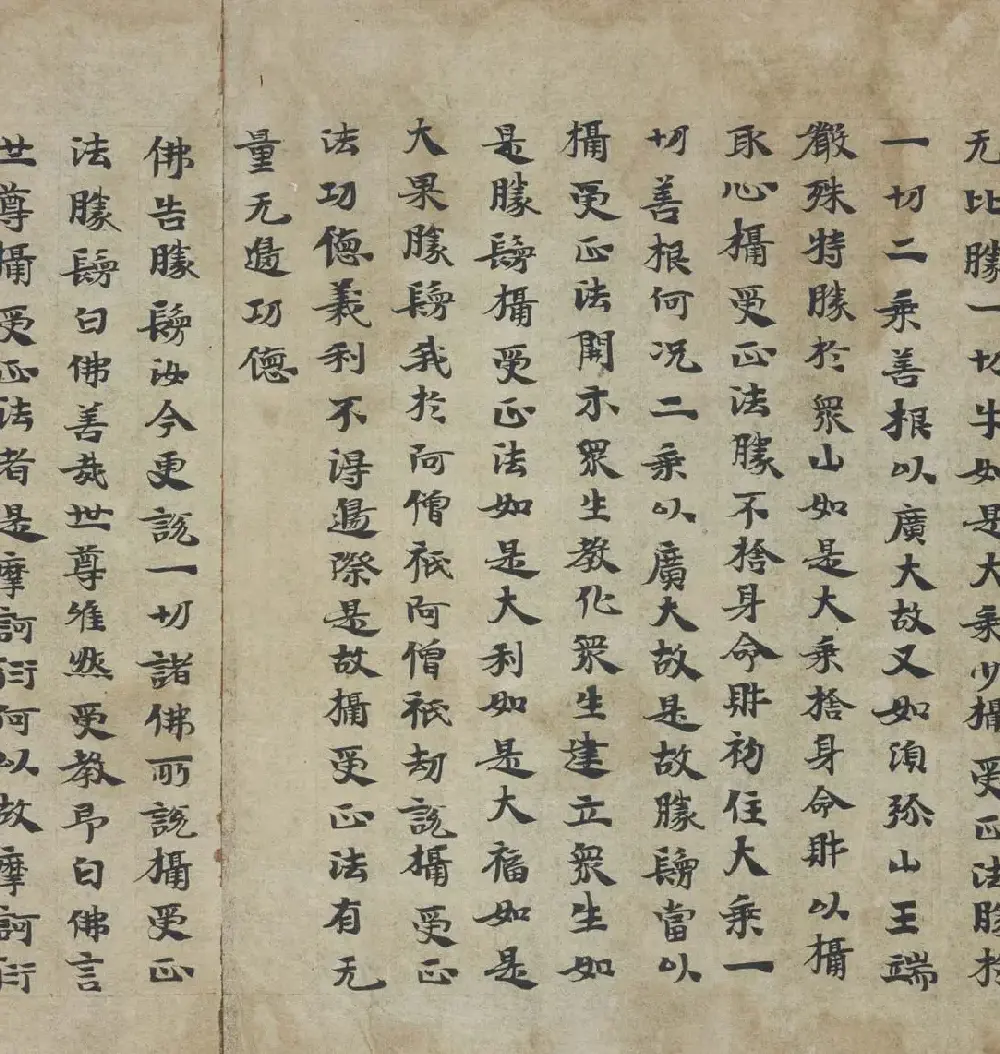 无比勝一切牛如是大乘少攝受正法勝於
一切二乘善根以廣大故又如須弥山王端
嚴殊特勝於眾山如是大乘捨身命財以攝
取心攝受正法勝不捨身命財初住大乘一
切善根何况二乘以廣大故是故勝鬘當以
攝受正法開示眾生教化眾生建立眾生如
是勝鬘攝受正法如是大利如是大福如是
大果勝鬘我於阿僧祇阿僧祇劫說攝受正
法功德義利不得邊際是故攝受正法有无
量无邊功德
佛告勝鬘汝今更說一切諸佛所說攝受正
法勝鬘白佛善哉世尊唯然受教即白佛言
世尊攝受正法者是摩訶衍何以故摩訶衍